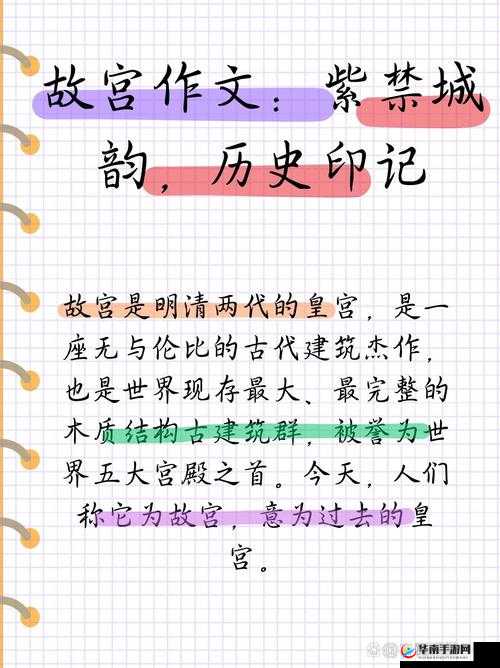 故宫作文：紫禁城
韵，历史印记
故宫是明清两代的皇宫，是一
座无与伦比的古代建筑杰作，
也是世界现存最大、最完整的
木质结构古建筑群，被誉为世
界五大宫殿之首。今天，人们
称它为故宫，意为过去的皇
宫。
华南手游网